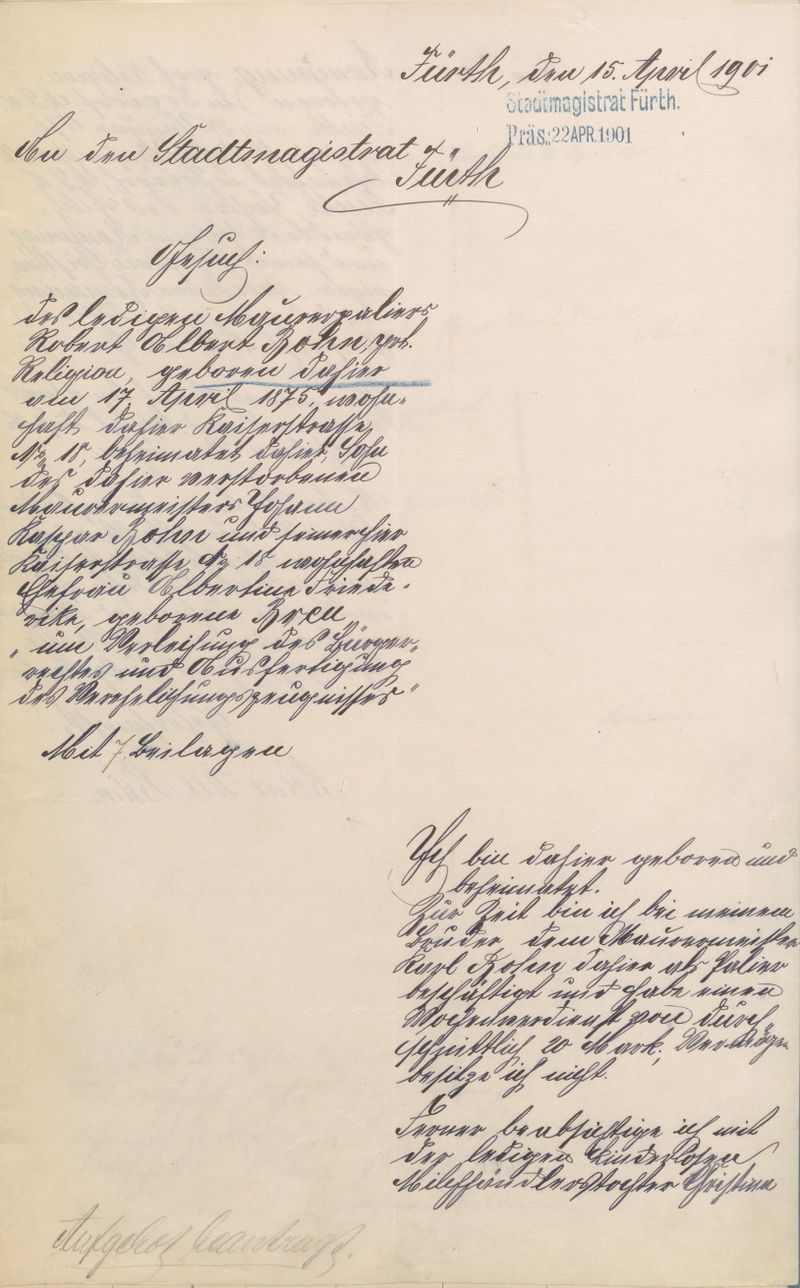 Fürth, den 15. April 1901
Stadtmagistrat Fürth.
Präs: 22 APR. 1901
An den Stadtmagistrat
Fürth
Gesuch:
des ledigen Maurerpaliers
Robert Albert Bohn, prt.
Religion, geboren dahier
am 17. April 1875, wohn-
haft dahier Kaiserstrasse
No 18, beheimatet dahier, Sohn
des dahier verstorbenen
Maurermeisters Johann
Kaspar Bohn und seiner hier
Kaiserstrasse No 18 wohnhaften
Ehefrau Albertine Friede-
rike, geborene
„um Verleihung des Bürger-
rechtes und Ausfertigung
des Verehelichungszeugnisses“
Mit 7 Beilagen
Ich bin dahier geboren und
beheimatet.
Zur Zeit bin ich bei meinem
Bruder, dem Maurermeister
Karl Bohn dahier als Palier
beschäftigt und habe einen
Wochenverdienst von durch-
schnittlich 20 Mark; Vermögen
besitze ich nicht.
Ferner beabsichtige ich mit
der ledigen kinderlosen
Milchhändlerstochter Christina
Aufgebot beantragt.